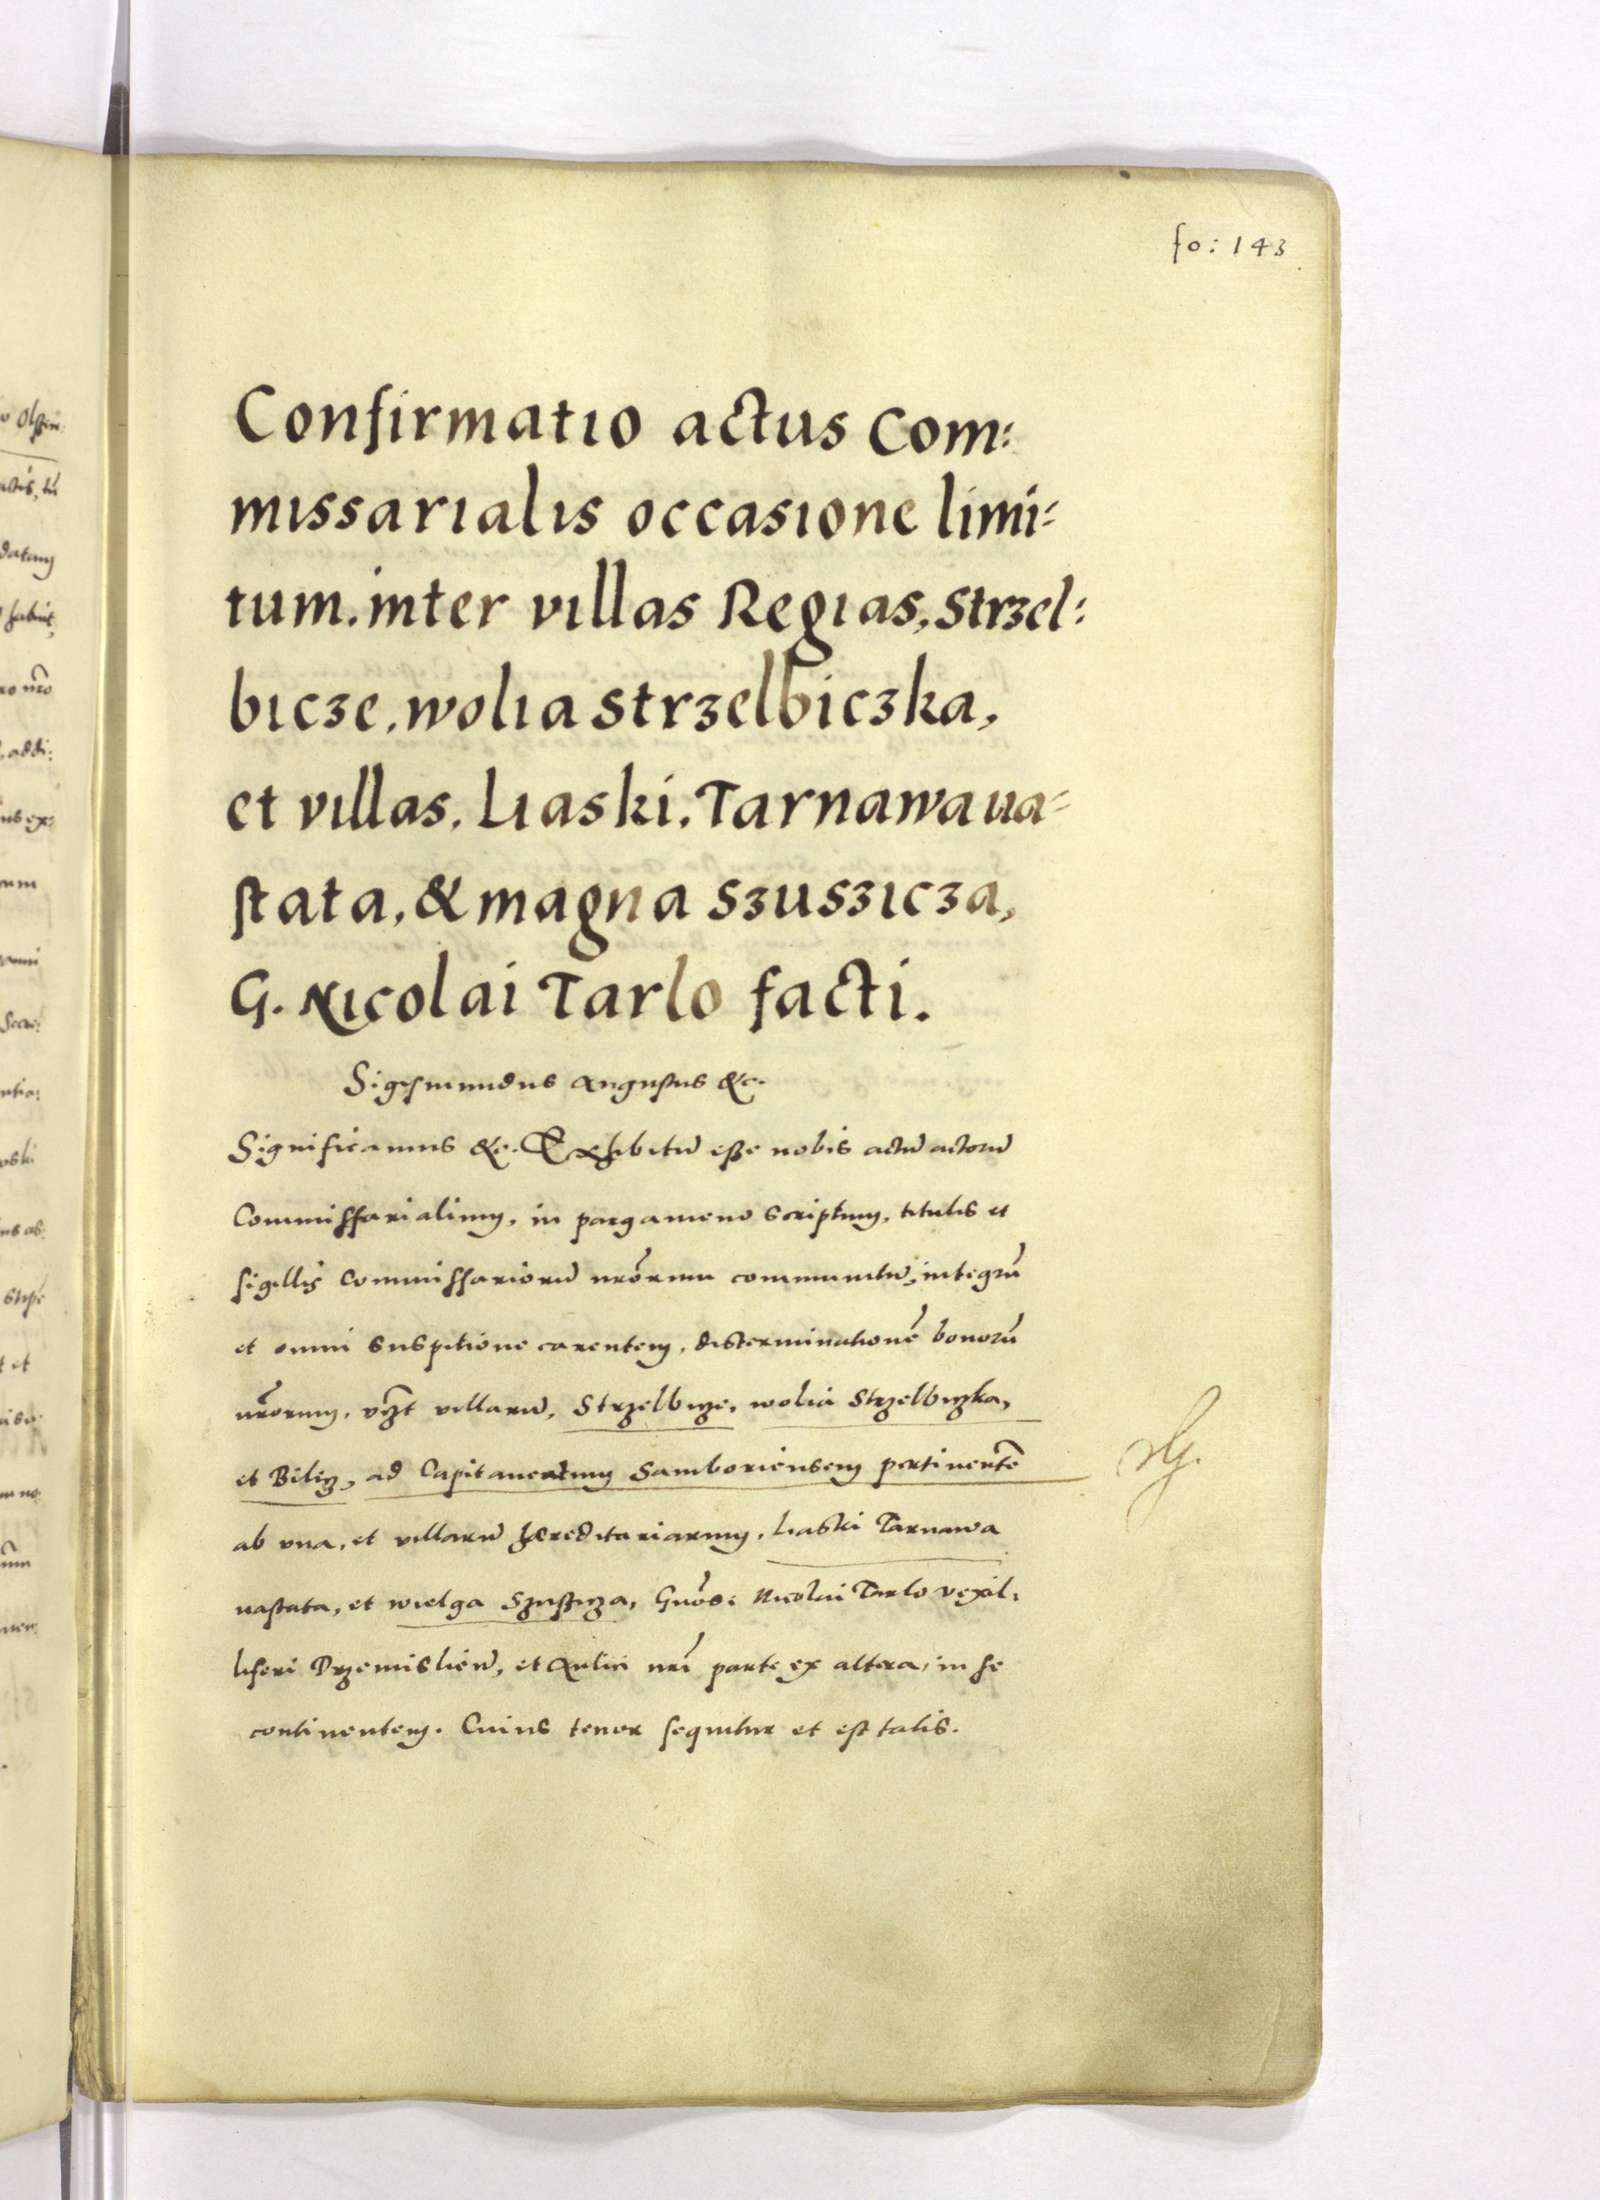 fo: 143
Confirmatio actus Com:
missarialis occasione limi:
tum. inter villas Regias, Strzel:
bicze, wolia Strzelbiczka,
et villas, Liaski, Tarnawa ua:
stata, & magna Szuszicza,
G. Nicolai Tarlo facti.
Sigismundus Augustus &c.
Significamus &c. Exhibitū esse nobis actū actorū
Commissarialium, in pargameno scriptum, titulis et
sigillis Commissariorū nrōrum communitū, integrū
et omni suspitione carentem, disterminationē bonorū
nrōrum, vczt villarū, Strzelbicze, wolia Strzelbiczka,
et Bilicz, ad Capitaneatum Samboriensem pertinentē
ab vna, et villarū hæreditariarum, Liaski Tarnawa
uastata, et wielga Szuszicza, Gnōsi Nicolai Tarlo vexil:
liferi Przemislień, et Aulici nrī parte ex altera, in se
continentem. Cuius tenor sequitur et est talis.